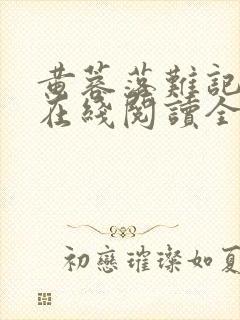 黄蓉落難記
在綫閱讀全
初戀璀璨如夏